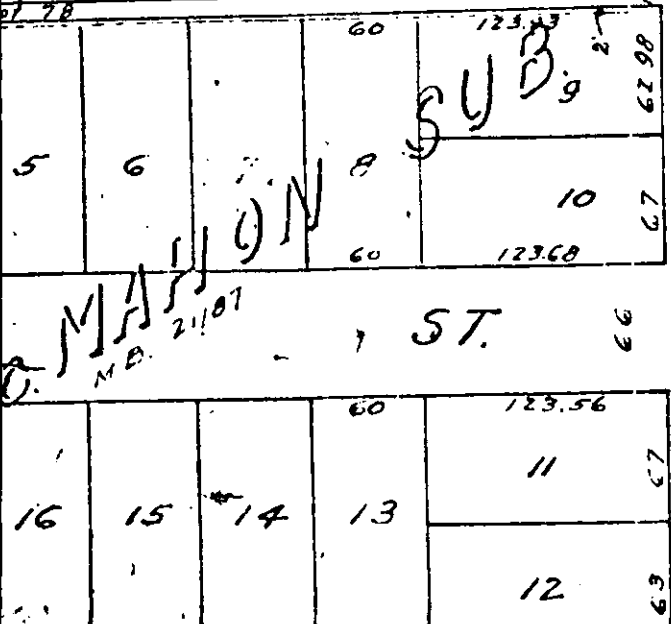 60 123.43 2
62.98
9
5 6 7 8
10 67
60 123.68
MAHON SUB.
M.B. 21/87
ST. 66
60 123.56
11 67
16 15 14 13
12 63